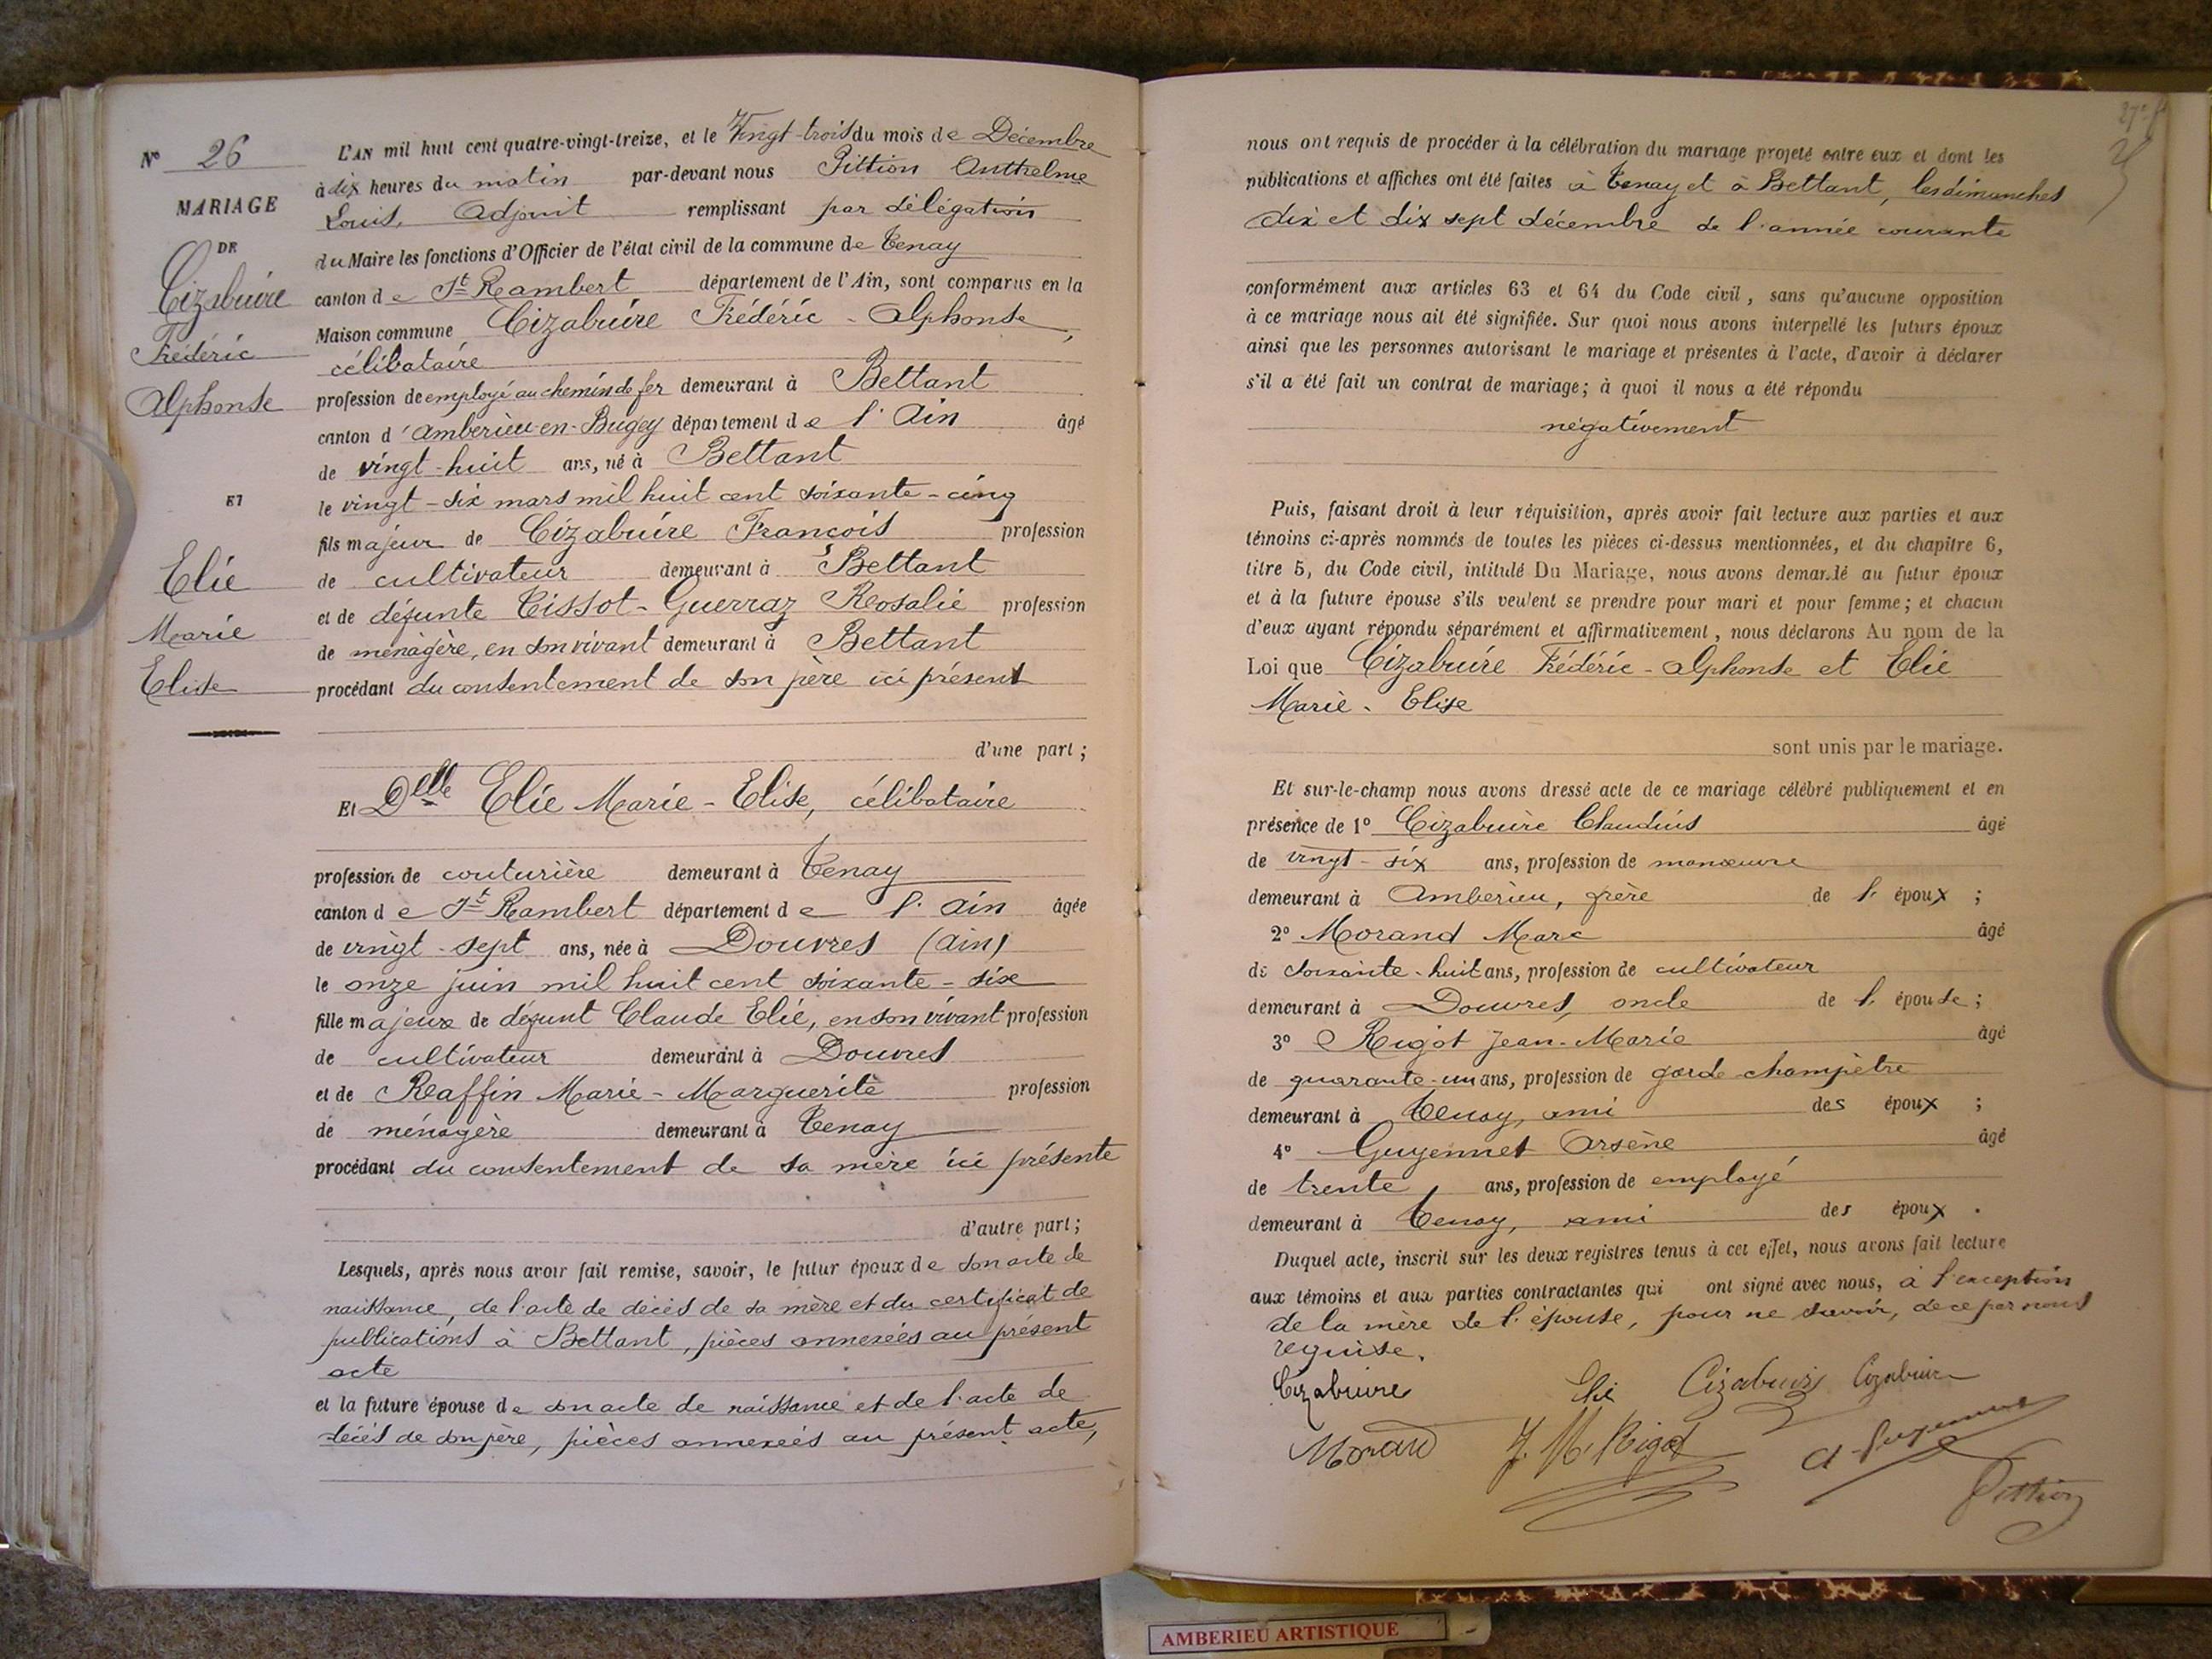 N° 26
MARIAGE
DE
Cizabuire
Frédéric
Alphonse
ET
Elie
Marie
Elise
L'AN mil huit cent quatre-vingt-treize, et le Vingt-trois du mois de Décembre
à dix heures du matin par-devant nous Pittion Anthelme
Louis, Adjoint remplissant par délégation
du Maire les fonctions d'Officier de l'état civil de la commune de Tenay
canton de St Rambert département de l'Ain, sont comparus en la
Maison commune Cizabuire Frédéric - Alphonse,
célibataire
profession de employé au chemin de fer demeurant à Bettant
canton d'Ambérieu-en-Bugey département de l'Ain âgé
de vingt-huit ans, né à Bettant
le vingt-six mars mil huit cent soixante-cinq
fils majeur de Cizabuire François profession
de cultivateur demeurant à Bettant
et de défunte Tissot-Guerraz Rosalie profession
de ménagère, en son vivant demeurant à Bettant
procédant du consentement de son père ici présent
d'une part ;
Et Delle Elie Marie-Elise, célibataire
profession de couturière demeurant à Tenay
canton de St Rambert département de l'Ain âgée
de vingt-sept ans, née à Douvres (Ain)
le onze juin mil huit cent soixante-six
fille majeure de défunt Claude Elie, en son vivant profession
de cultivateur demeurant à Douvres
et de Raffin Marie-Marguerite profession
de ménagère demeurant à Tenay
procédant du consentement de sa mère ici présente
d'autre part ;
Lesquels, après nous avoir fait remise, savoir, le futur époux de son acte de
naissance, de l'acte de décès de sa mère et du certificat de
publications à Bettant, pièces annexées au présent
acte
et la future épouse de son acte de naissance et de l'acte de
décès de son père, pièces annexées au présent acte,
nous ont requis de procéder à la célébration du mariage projeté entre eux et dont les
publications et affiches ont été faites à Tenay et à Bettant, les dimanches
dix et dix sept décembre de l'année courante
conformément aux articles 63 et 64 du Code civil, sans qu'aucune opposition
à ce mariage nous ait été signifiée. Sur quoi nous avons interpellé les futurs époux
ainsi que les personnes autorisant le mariage et présentes à l'acte, d'avoir à déclarer
s'il a été fait un contrat de mariage; à quoi il nous a été répondu
négativement
Puis, faisant droit à leur réquisition, après avoir fait lecture aux parties et aux
témoins ci-après nommés de toutes les pièces ci-dessus mentionnées, et du chapitre 6,
titre 5, du Code civil, intitulé Du Mariage, nous avons demandé au futur époux
et à la future épouse s'ils veulent se prendre pour mari et pour femme; et chacun
d'eux ayant répondu séparément et affirmativement, nous déclarons Au nom de la
Loi que Cizabuire Frédéric-Alphonse et Elie
Marie-Elise
sont unis par le mariage.
Et sur-le-champ nous avons dressé acte de ce mariage célébré publiquement et en
présence de 1° Cizabuire Claudius âgé
de vingt-six ans, profession de manœuvre
demeurant à Ambérieu, frère de l'époux ;
2° Morand Marc âgé
de soixante-huit ans, profession de cultivateur
demeurant à Douvres, oncle de l'épouse ;
3° Rigot Jean-Marie âgé
de quarante-un ans, profession de garde-champêtre
demeurant à Tenay, ami des époux ;
4° Guyennet Arsène âgé
de trente ans, profession de employé
demeurant à Tenay, ami des époux .
Duquel acte, inscrit sur les deux registres tenus à cet effet, nous avons fait lecture
aux témoins et aux parties contractantes qui ont signé avec nous, à l'exception
de la mère de l'épouse, pour ne savoir, de ce par nous
requise.
Cizabuire Elie Cizabuire Cizabuire
Morand J. M. Rigot A Guyennet
Pittion
AMBERIEU ARTISTIQUE